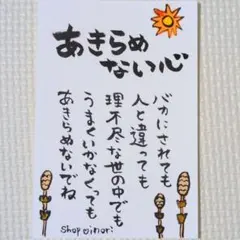 あきらめ
ない心
バカにされても
人と違っても
理不尽な世の中でも
うまくいかなくっても
あきらめないでね
shop inori